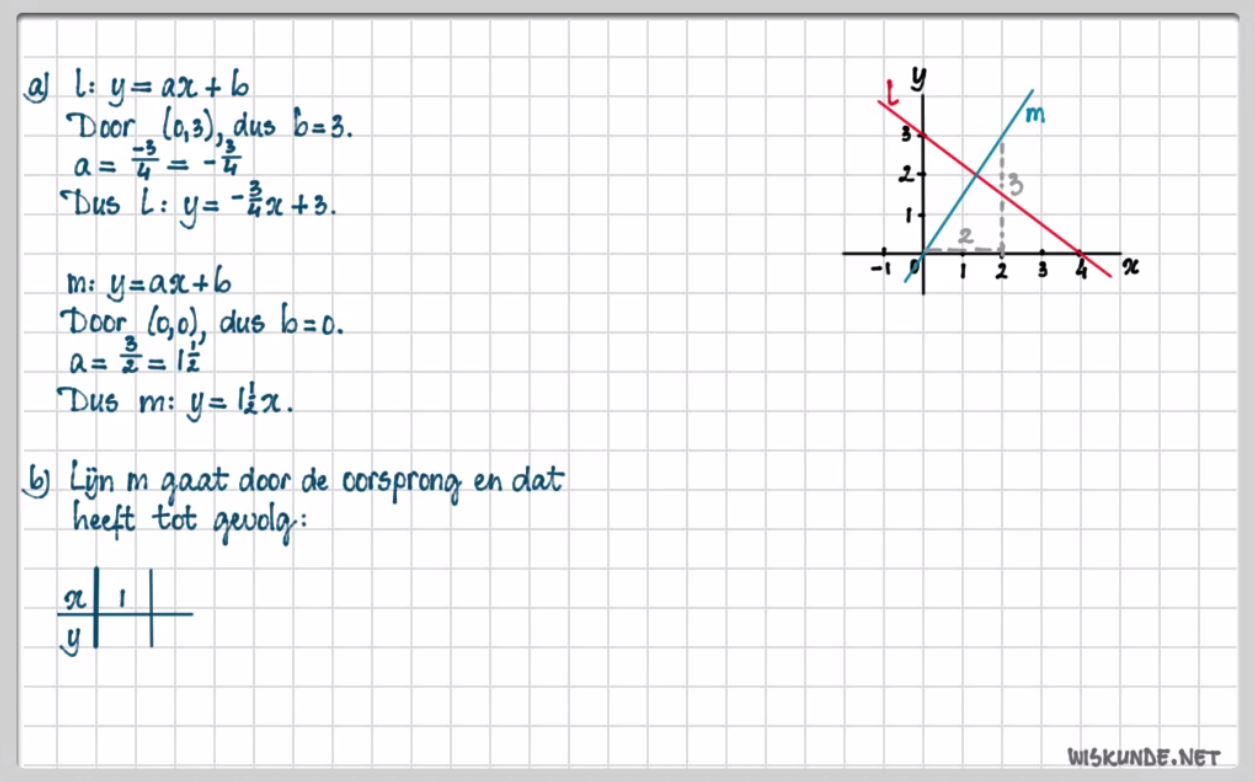 a) l: y = ax + b
Door (0,3), dus b = 3.
a = -3/4 = -3/4
Dus l: y = -3/4x + 3.
m: y = ax + b
Door (0,0), dus b = 0.
a = 3/2 = 1 1/2
Dus m: y = 1 1/2x.
b) Lijn m gaat door de oorsprong en dat
heeft tot gevolg:
x 1
y
y
l
m
3
2
3
1
2
-1 0 1 2 3 4 x
WISKUNDE.NET